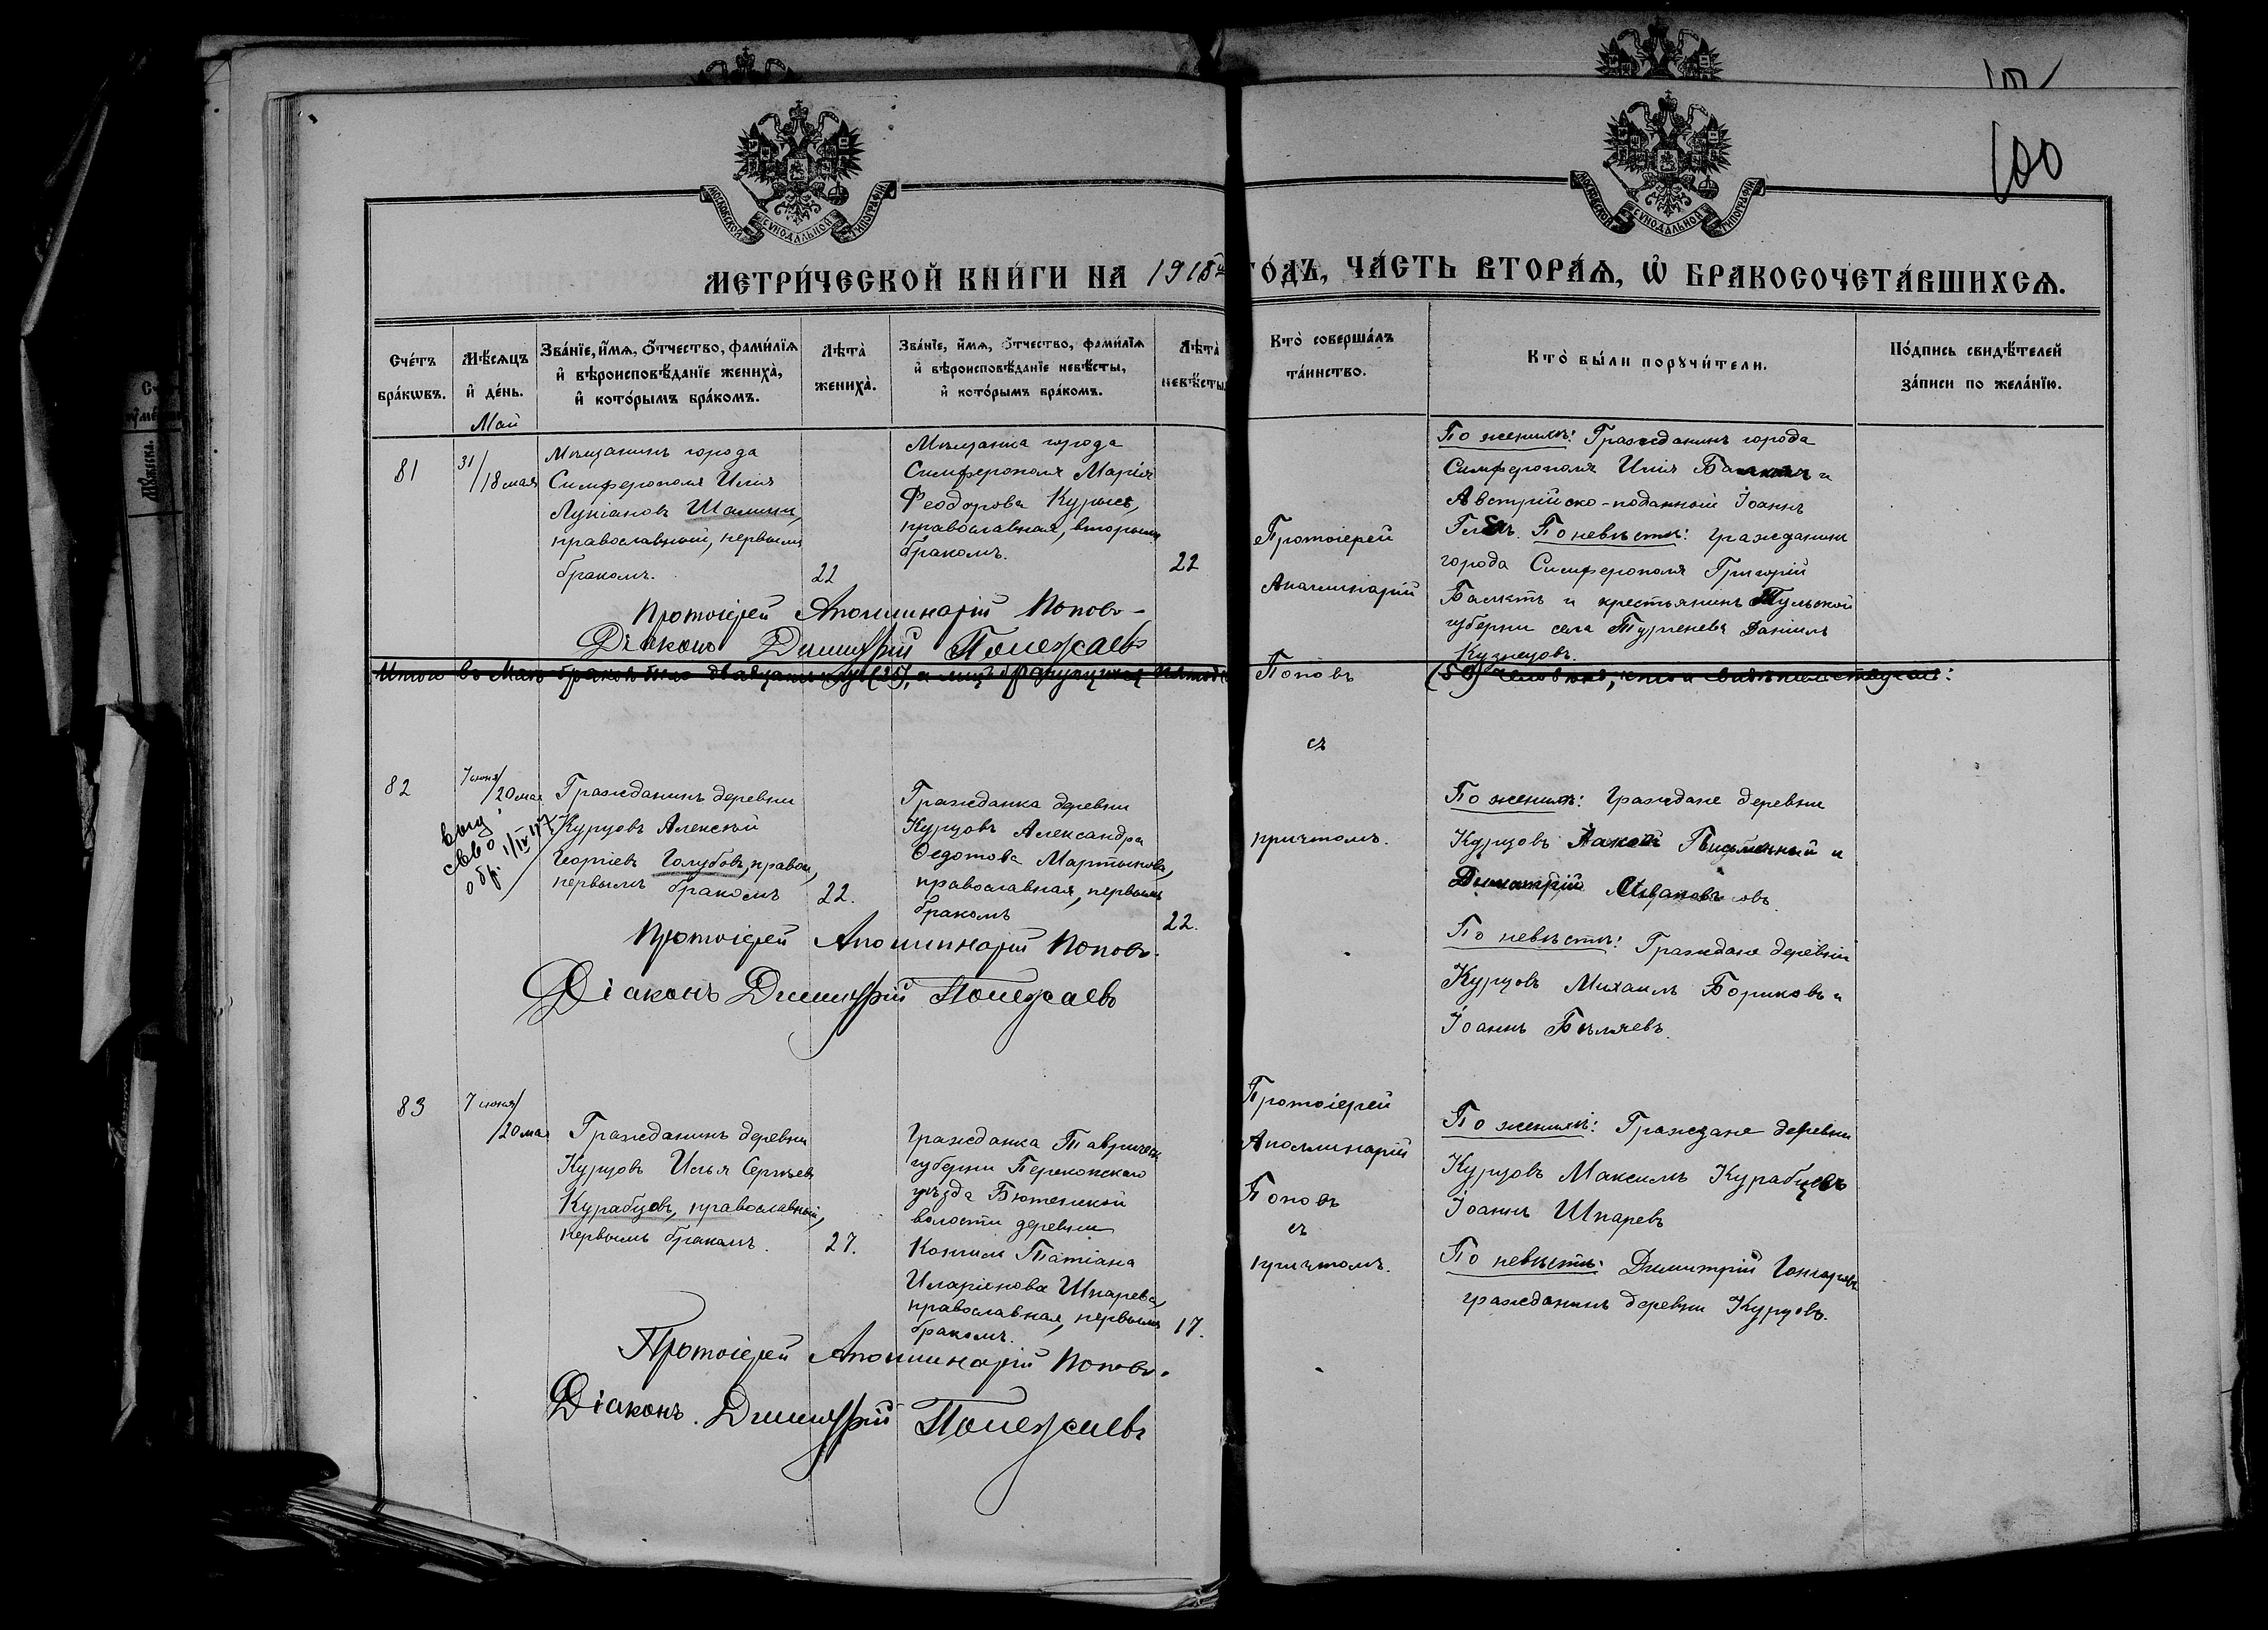 100
МОСКОВСКОЙ СУНОДАЛЬНОЙ ТИПОГРАФІИ
МОСКОВСКОЙ СУНОДАЛЬНОЙ ТИПОГРАФІИ
МЕТРИ́ЧЕСКОЙ КНИ́ГИ НА 1918 ГО́ДЪ, ЧА́СТЬ ВТОРА́Ѧ, Ѡ҆ БРАКОСОЧЕТА́ВШИХСѦ.
Сче́тъ бра́кѡвъ.
Мѣ́сѧцъ и҆ де́нь.
Зва́нїе, и҆́мѧ, ѻ҆́тчество, фами́лїѧ и҆ вѣроисповѣ́данїе жениха̀, и҆ кото́рымъ бра́комъ.
Лѣта̀ жениха̀.
Зва́нїе, и҆́мѧ, ѻ҆́тчество, фами́лїѧ и҆ вѣроисповѣ́данїе невѣ́сты, и҆ кото́рымъ бра́комъ.
Лѣта̀ невѣ́сты
Кто̀ соверша́лъ та́инство.
Кто̀ бы́ли порꙋчи́тели.
По́дпись свидѣ́телей за́писи по жела́нїю.
Май
81
31/18 мая
Мѣщанинъ города
Симферополя Илія
Лукіановъ
православный, первымъ
бракомъ.
22
Мѣщанка города
Симферополя Марія
Феодорова
православная, вторымъ
бракомъ.
22
Протоіерей
Аполлинарій
Поповъ
съ
причтомъ.
По женихѣ: Гражданинъ города
Симферополя Илія
Австрійско-поданный Іоаннъ
По невѣстѣ: гражданинъ
города Симферополя Григорій
и крестьянинъ Тульской
губерніи села Тургенева Даніилъ
Кузнецовъ.
Протоіерей Аполлинарій Поповъ
Діаконъ Димитрій Полежаевъ
Итого въ Маѣ браковъ было двадцать
82
7 іюня/20 мая
Гражданинъ деревни
Курцовъ Алексѣй
Георгіевъ Голубовъ, правосл,
первымъ бракомъ
22.
Гражданка деревни
Курцовъ Александра
Федотова Мартынова,
православная, первымъ
бракомъ
22.
По женихѣ: Граждане деревни
Курцовъ Письменный и
Димитрій
По невѣстѣ: Граждане деревни
Курцовъ Михаилъ Бориковъ и
Іоаннъ Бѣляевъ.
Протоіерей Аполлинарій Поповъ.
Діаконъ Димитрій Полежаевъ
83
7 іюня/20 мая
Гражданинъ деревни
Курцовъ Илья Сергѣевъ
Курабцовъ, православный,
первымъ бракомъ.
27.
Гражданка Тавричес
губерніи Перекопскаго
уѣзда Бютенской
волости деревни
Татіана
Иларіонова Шпарева,
православная, первымъ
бракомъ.
17.
Протоіерей
Аполлинарій
Поповъ
съ
причтомъ.
По женихѣ: Граждане деревни
Курцовъ Максимъ Курабцовъ
Іоаннъ Шпаревъ
По невѣстѣ: Димитрій Гончаровъ
гражданинъ деревни Курцовъ.
Протоіерей Аполлинарій Поповъ.
Діаконъ. Димитрій Полежаевъ